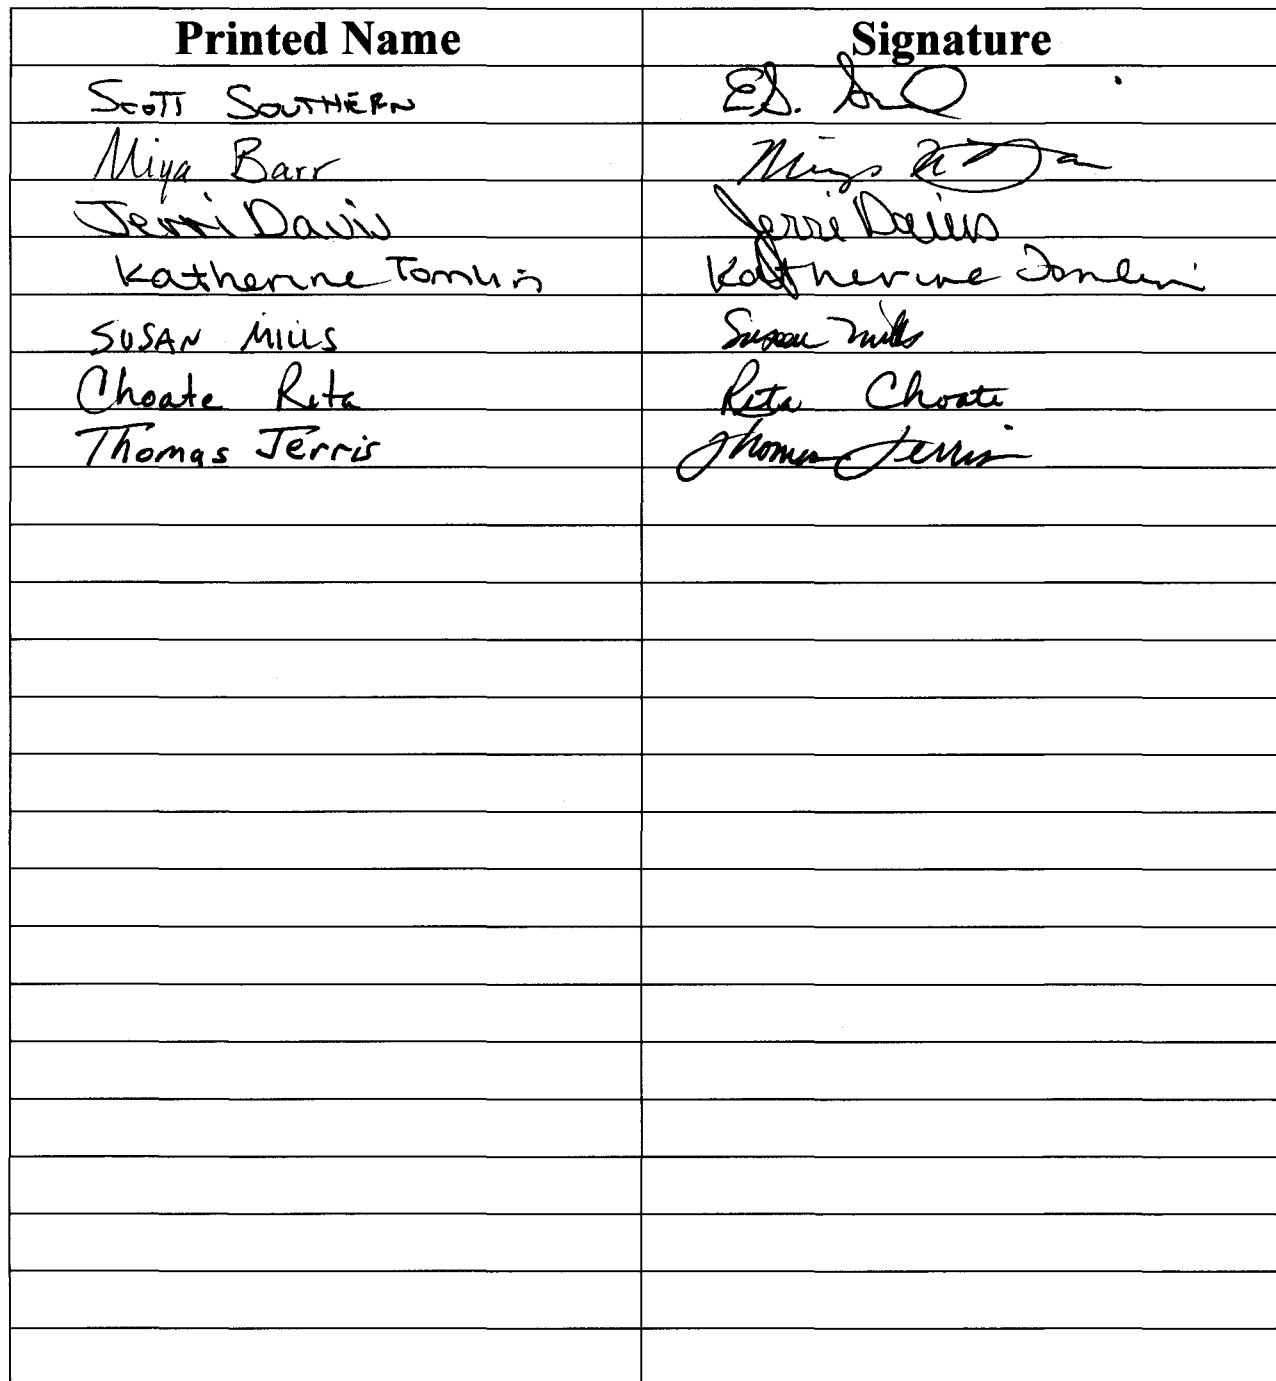 Printed Name Signature
Scott Southern E.S.
Miya Barr
Jerri Davis Jerri Davis
Katherine Tomlin Katherine Tomlin
SUSAN MILLS Susan Mills
Choate Rita Rita Choate
Thomas Jerris Thomas Jerris